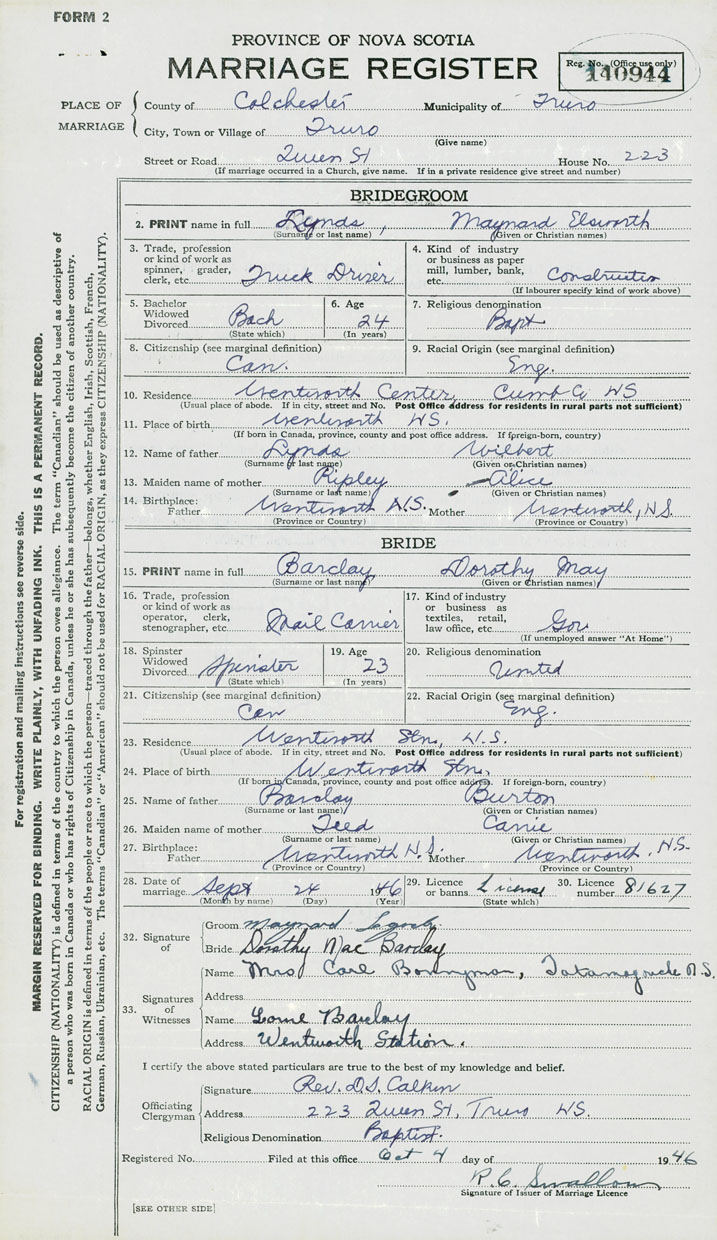 FORM 2
PROVINCE OF NOVA SCOTIA
MARRIAGE REGISTER
Reg. No. (Office use only)
140944
PLACE OF MARRIAGE
County of Colchester Municipality of Truro
City, Town or Village of Truro
(Give name)
Street or Road Queen St House No. 223
(If marriage occurred in a Church, give name. If in a private residence give street and number)
BRIDEGROOM
2. PRINT name in full Lynds, Maynard Elsworth
(Surname or last name) (Given or Christian names)
3. Trade, profession or kind of work as spinner, grader, clerk, etc. Truck Driver
4. Kind of industry or business as paper mill, lumber, bank, etc. Construction
(If labourer specify kind of work above)
5. Bachelor Widowed Divorced Bach
(State which)
6. Age 24
(In years)
7. Religious denomination Bapt
8. Citizenship (see marginal definition) Can.
9. Racial Origin (see marginal definition) Eng.
10. Residence Wentworth Center, Cumb Co NS
(Usual place of abode. If in city, street and No. Post Office address for residents in rural parts not sufficient)
11. Place of birth Wentworth NS.
(If born in Canada, province, county and post office address. If foreign-born, country)
12. Name of father Lynds Wilbert
(Surname or last name) (Given or Christian names)
13. Maiden name of mother Ripley Alice
(Surname or last name) (Given or Christian names)
14. Birthplace: Father Wentworth N.S. Mother Wentworth, N.S.
(Province or Country) (Province or Country)
BRIDE
15. PRINT name in full Barclay Dorothy May
(Surname or last name) (Given or Christian names)
16. Trade, profession or kind of work as operator, clerk, stenographer, etc. Mail Carrier
17. Kind of industry or business as textiles, retail, law office, etc. Gov
(If unemployed answer "At Home")
18. Spinster Widowed Divorced Spinster
(State which)
19. Age 23
(In years)
20. Religious denomination United
21. Citizenship (see marginal definition) Can
22. Racial Origin (see marginal definition) Eng.
23. Residence Wentworth Stn, N.S.
(Usual place of abode. If in city, street and No. Post Office address for residents in rural parts not sufficient)
24. Place of birth Wentworth Stn.
(If born in Canada, province, county and post office address. If foreign-born, country)
25. Name of father Barclay Burton
(Surname or last name) (Given or Christian names)
26. Maiden name of mother Teed Carrie
(Surname or last name) (Given or Christian names)
27. Birthplace: Father Wentworth N.S. Mother Wentworth, N.S.
(Province or Country) (Province or Country)
28. Date of marriage Sept 24 1946
(Month by name) (Day) (Year)
29. Licence or banns License
(State which)
30. Licence number 81627
32. Signature of
Groom Maynard Lynds
Bride Dorothy Mae Barclay
33. Signatures of Witnesses
Name Mrs Carl Bonnyman, Tatamagouche N.S.
Address
Name Lorne Barclay
Address Wentworth Station.
I certify the above stated particulars are true to the best of my knowledge and belief.
Officiating Clergyman
Signature Rev. D.S. Calkin
Address 223 Queen St, Truro NS.
Religious Denomination Baptist.
Registered No. Filed at this office Oct 4 day of 1946
R.C. Swallow
Signature of Issuer of Marriage Licence
[SEE OTHER SIDE]
For registration and mailing instructions see reverse side.
MARGIN RESERVED FOR BINDING. WRITE PLAINLY, WITH UNFADING INK. THIS IS A PERMANENT RECORD.
CITIZENSHIP (NATIONALITY) is defined in terms of the country to which the person owes allegiance. The term "Canadian" should be used as descriptive of
a person who was born in Canada or who has rights of Citizenship in Canada, unless he or she has subsequently become the citizen of another country.
RACIAL ORIGIN is defined in terms of the people or race to which the person—traced through the father—belongs, whether English, Irish, Scottish, French,
German, Russian, Ukrainian, etc. The terms "Canadian" or "American" should not be used for RACIAL ORIGIN, as they express CITIZENSHIP (NATIONALITY).